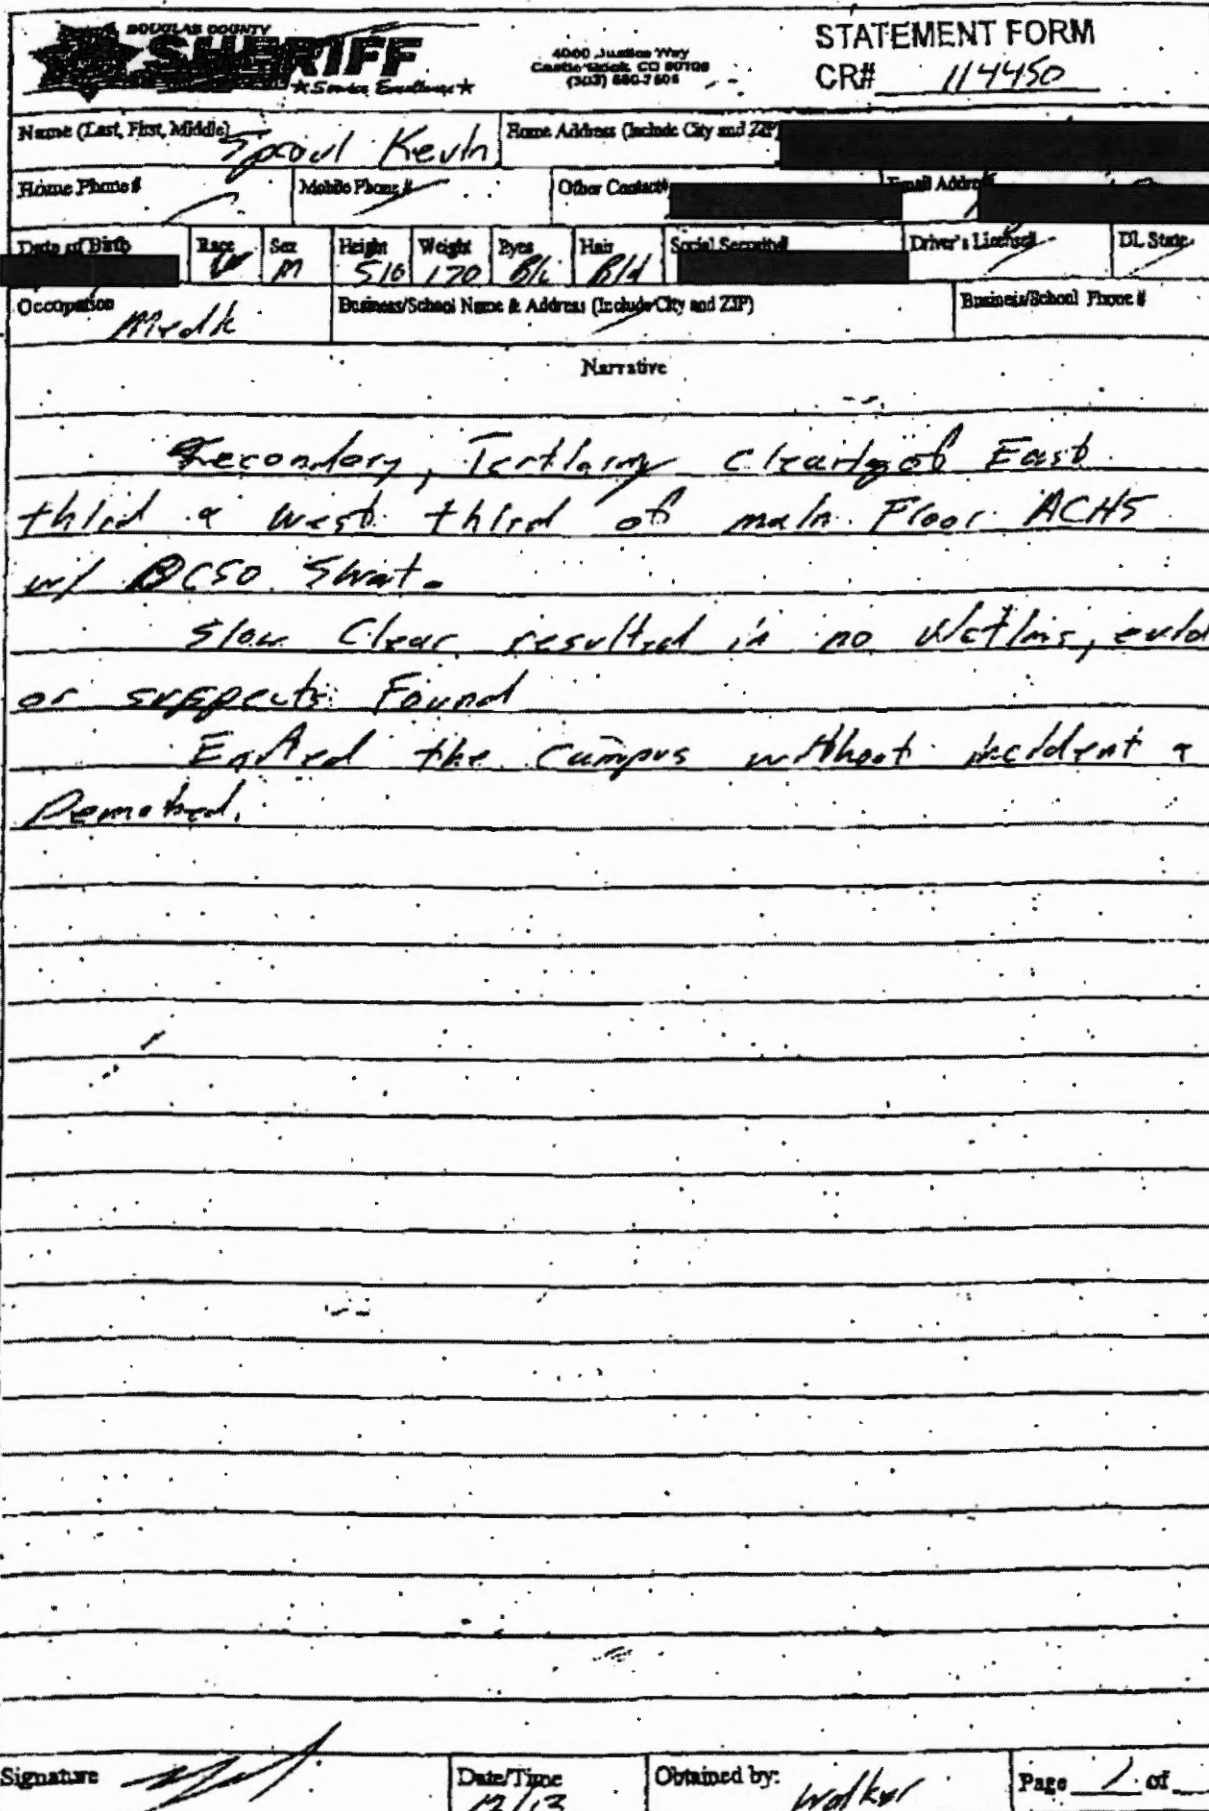 DOUGLAS COUNTY
SHERIFF
★ Service Excellence ★
4000 Justice Way
Castle Rock, CO 80109
(303) 660-7505
STATEMENT FORM
CR# 114450
Name (Last, First, Middle) Sproul Kevin Home Address (Include City and ZIP)
Home Phone # Mobile Phone # Other Contact# Email Address
Date of Birth Race W Sex M Height 510 Weight 170 Eyes Blu Hair Bld Social Security# Driver's License# DL State
Occupation Medic Business/School Name & Address (Include City and ZIP) Business/School Phone #
Narrative
Secondary, Tertiary clearing of East
third & west third of main Floor ACHS
w/ DCSO Swat.
Slow Clear resulted in no victims, evid
or suspects Found
the campus without incident &
Demobed.
Signature Date/Time 12/13 Obtained by: Walker Page 1 of